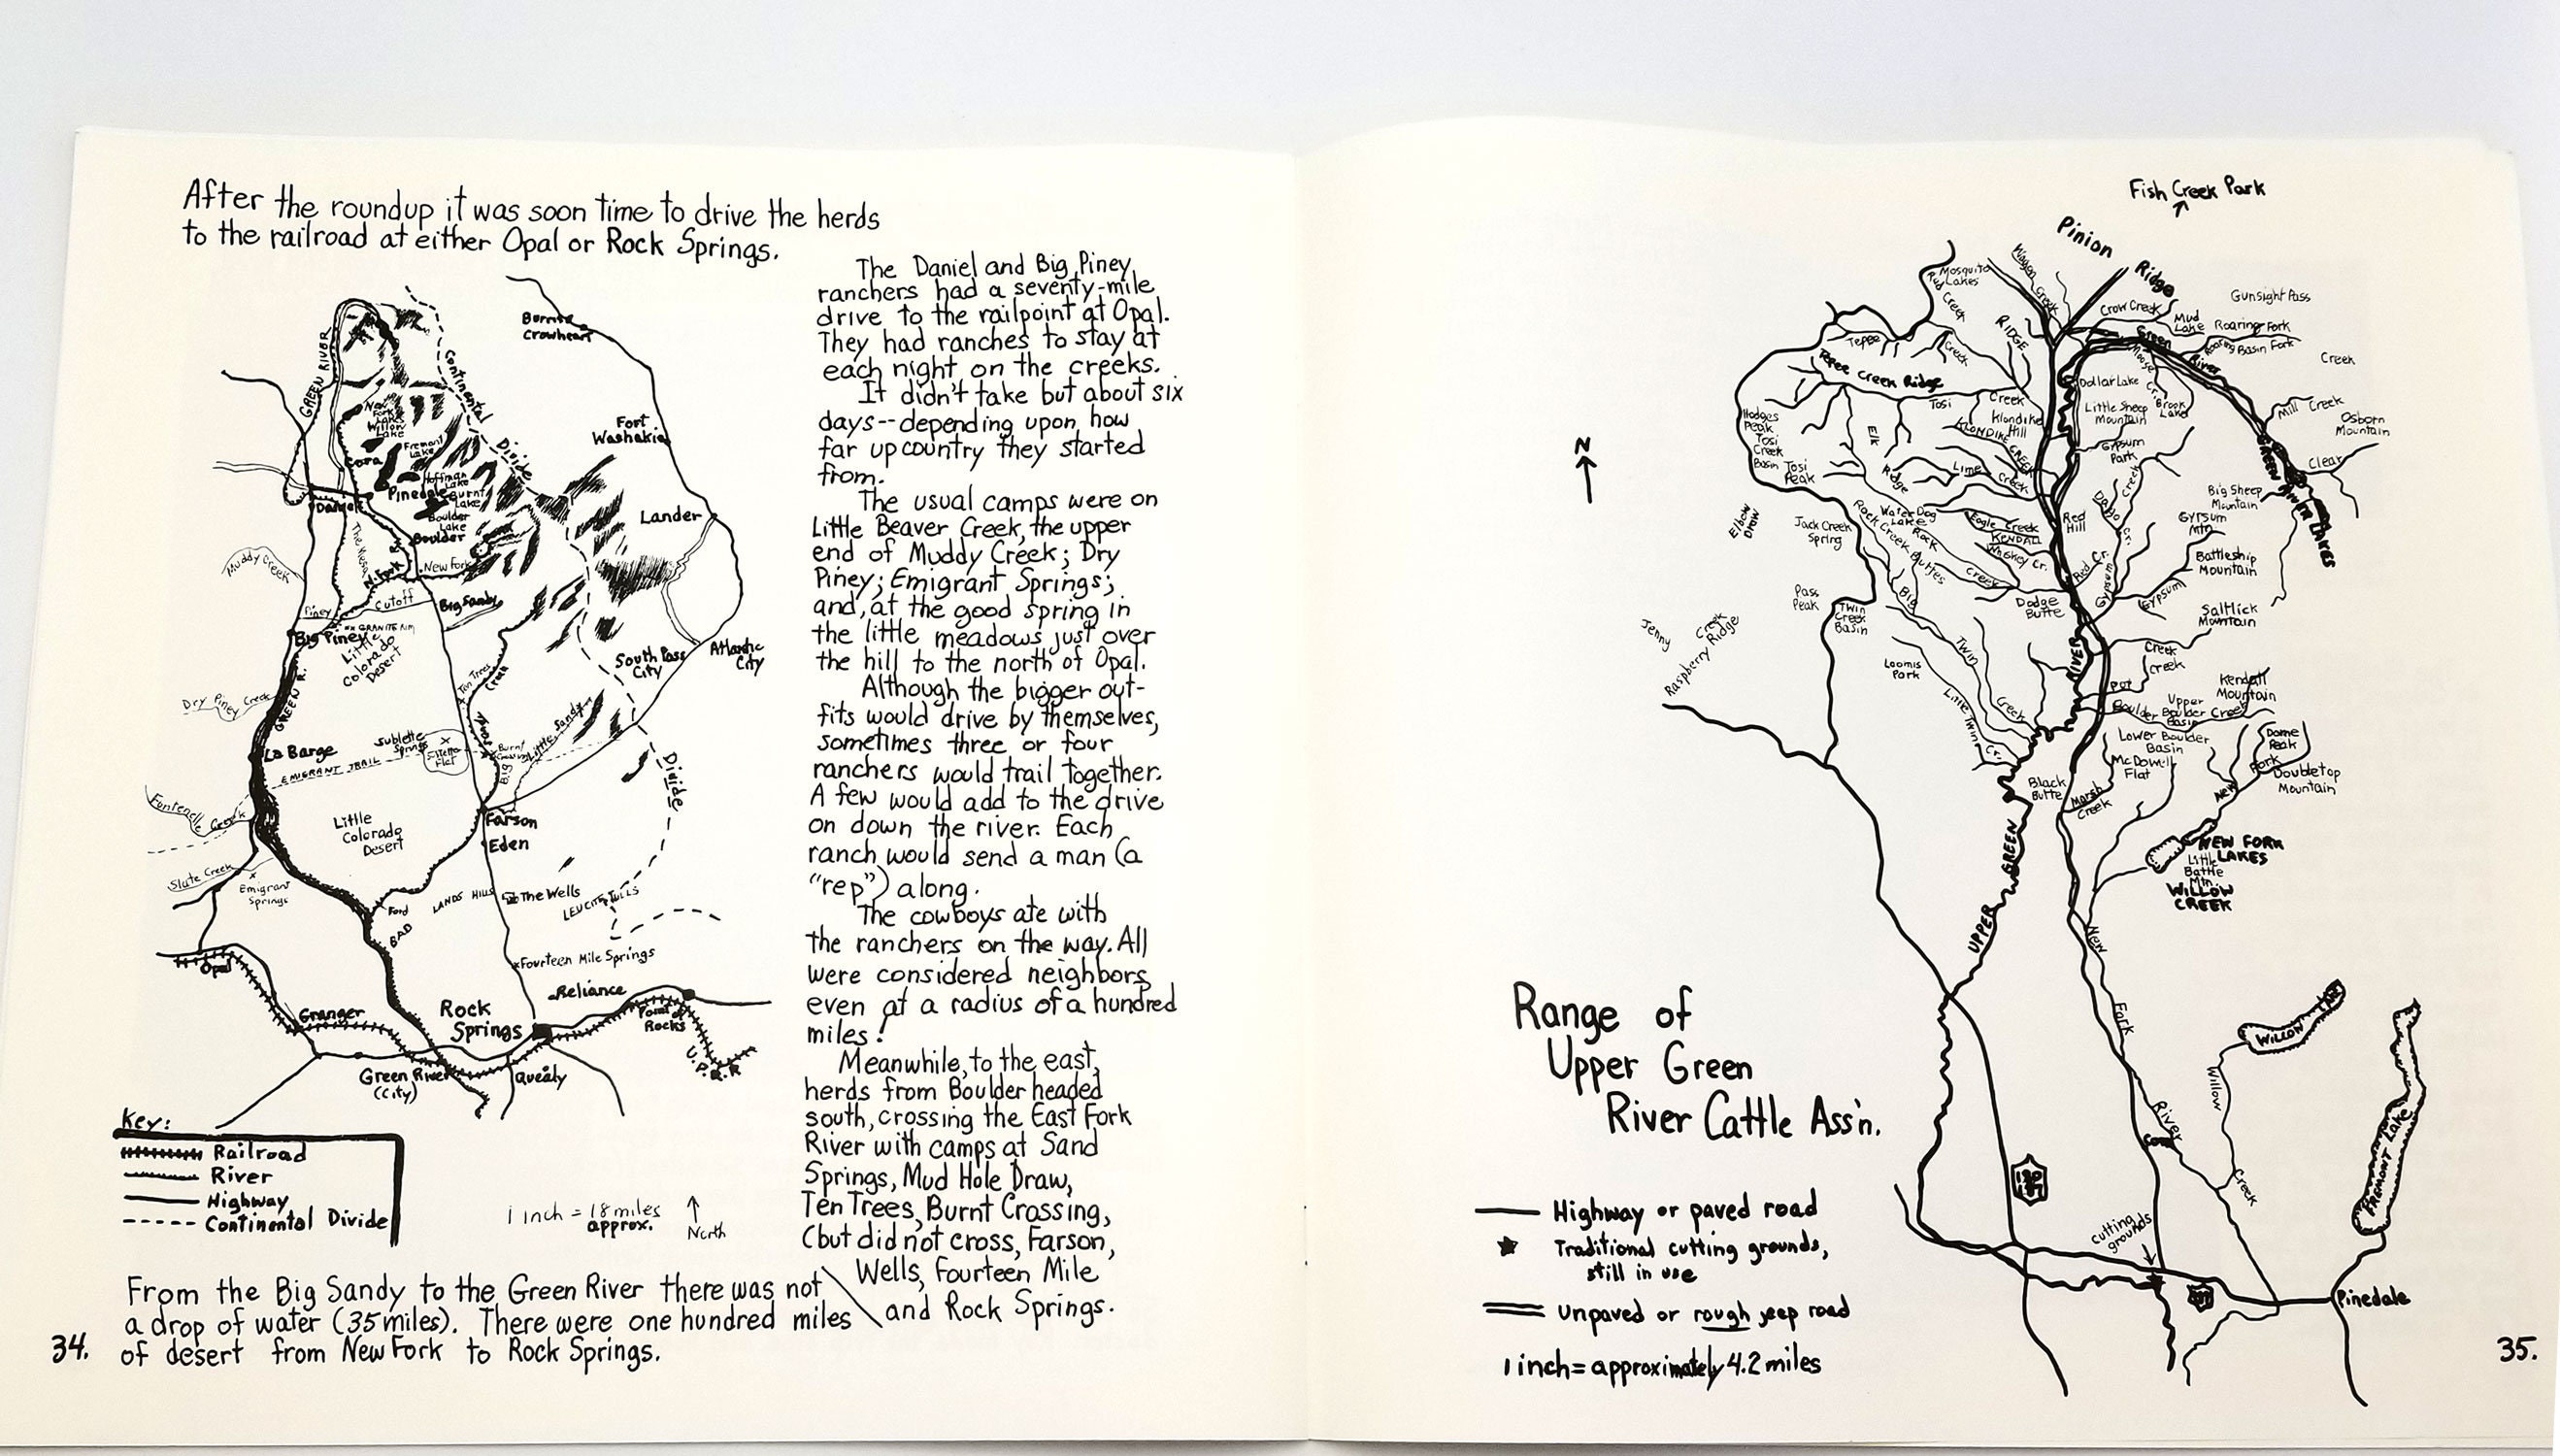 After the roundup it was soon time to drive the herds
to the railroad at either Opal or Rock Springs.
Burris
Crowheart
GREEN RIVER
Continental
Divide
Fort
Washakie
New
Fork
Lake
Willow
Lake
Fremont
Lake
Cora
Hoffman
Lake
Pinedale
Burnt
Lake
Daniel
Boulder
Lake
Boulder
Lander
Muddy Creek
N. Fork R.
New Fork
Piney
Cutoff
Big Sandy
Big Piney
GRANITE RIM
Little
Colorado
Desert
South Pass
City
Atlantic
City
Ten Trees
Dry Piney Creek
GREEN R.
La Barge
Sublette
Springs
Flat
EMIGRANT TRAIL
Burnt
Crossing
Little Sandy
Big
Divide
Fontenelle
Creek
Little
Colorado
Desert
Farson
Eden
Slate Creek
Emigrant
Springs
Ford
BAD
LANDS HILLS
The Wells
LEUCITE HILLS
Fourteen Mile Springs
Opal
Reliance
Granger
Rock
Springs
Point of
Rocks
U.P.R.R
Green River
(City)
Quealy
Key:
Railroad
River
Highway
Continental Divide
1 inch = 18 miles
approx.
North
The Daniel and Big Piney
ranchers had a seventy-mile
drive to the railpoint at Opal.
They had ranches to stay at
each night on the creeks.
It didn't take but about six
days--depending upon how
far up country they started
from.
The usual camps were on
Little Beaver Creek, the upper
end of Muddy Creek; Dry
Piney; Emigrant Springs;
and, at the good spring in
the little meadows just over
the hill to the north of Opal.
Although the bigger out-
fits would drive by themselves,
sometimes three or four
ranchers would trail together.
A few would add to the drive
on down the river. Each
ranch would send a man (a
"rep") along.
The cowboys ate with
the ranchers on the way. All
were considered neighbors
even at a radius of a hundred
miles!
Meanwhile, to the east,
herds from Boulder headed
south, crossing the East Fork
River with camps at Sand
Springs, Mud Hole Draw,
Ten Trees, Burnt Crossing,
(but did not cross, Farson,
Wells, Fourteen Mile
and Rock Springs.
From the Big Sandy to the Green River there was not
a drop of water (35 miles). There were one hundred miles
of desert from New Fork to Rock Springs.
34.
Fish Creek Park
Pinion
Ridge
Mosquito
Lakes
Red Creek
Wagon Creek
Gunsight Pass
Crow Creek
Mud
Lake
Roaring Fork
Roaring Basin Fork
Creek
RIDGE
Teepee
Creek
Tepee Creek Ridge
Green
River
Moose Cr.
Dollar Lake
Little Sheep
Mountain
Brook
Lake
Mill Creek
Osborn
Mountain
Tosi
Creek
Klondike
Hill
KLONDIKE CREEK
Hodges
Peak
Tosi
Creek
Basin
Tosi
Peak
Elk
Ridge
Lime
Creek
Gypsum
Park
Creek
Clear
GREEN RIVER LAKES
N
Elbow
Draw
Jack Creek
Spring
Water Dog
Lake
Rock Creek Buttes
Rock
Creek
Eagle Creek
KENDALL
Whiskey Cr.
Red
Hill
Dodge
Butte
Red Cr.
Gypsum Cr.
Big Sheep
Mountain
Gypsum
Mtn
Battleship
Mountain
Gypsum
Saltlick
Mountain
Pass
Peak
Twin
Creek
Basin
Big
Twin
Creek
Jenny
Creek
Raspberry Ridge
Loomis
Park
Little Twin
Cr.
RIVER
Creek
Creek
Pot
Kendall
Mountain
Boulder
Upper
Boulder Creek
Basin
Lower Boulder
Basin
McDowell
Flat
Dome
Peak
Fork
Doubletop
Mountain
New
Black
Butte
Marsh
Creek
GREEN
UPPER
NEW FORK
LAKES
Little
Battle
Mtn.
WILLOW
CREEK
New
Fork
River
Range of
Upper Green
River Cattle Ass'n.
WILLOW
Willow
Creek
Cora
Fremont Lake
cutting
grounds
Pinedale
Highway or paved road
Traditional cutting grounds,
still in use
Unpaved or rough jeep road
1 inch = approximately 4.2 miles
35.